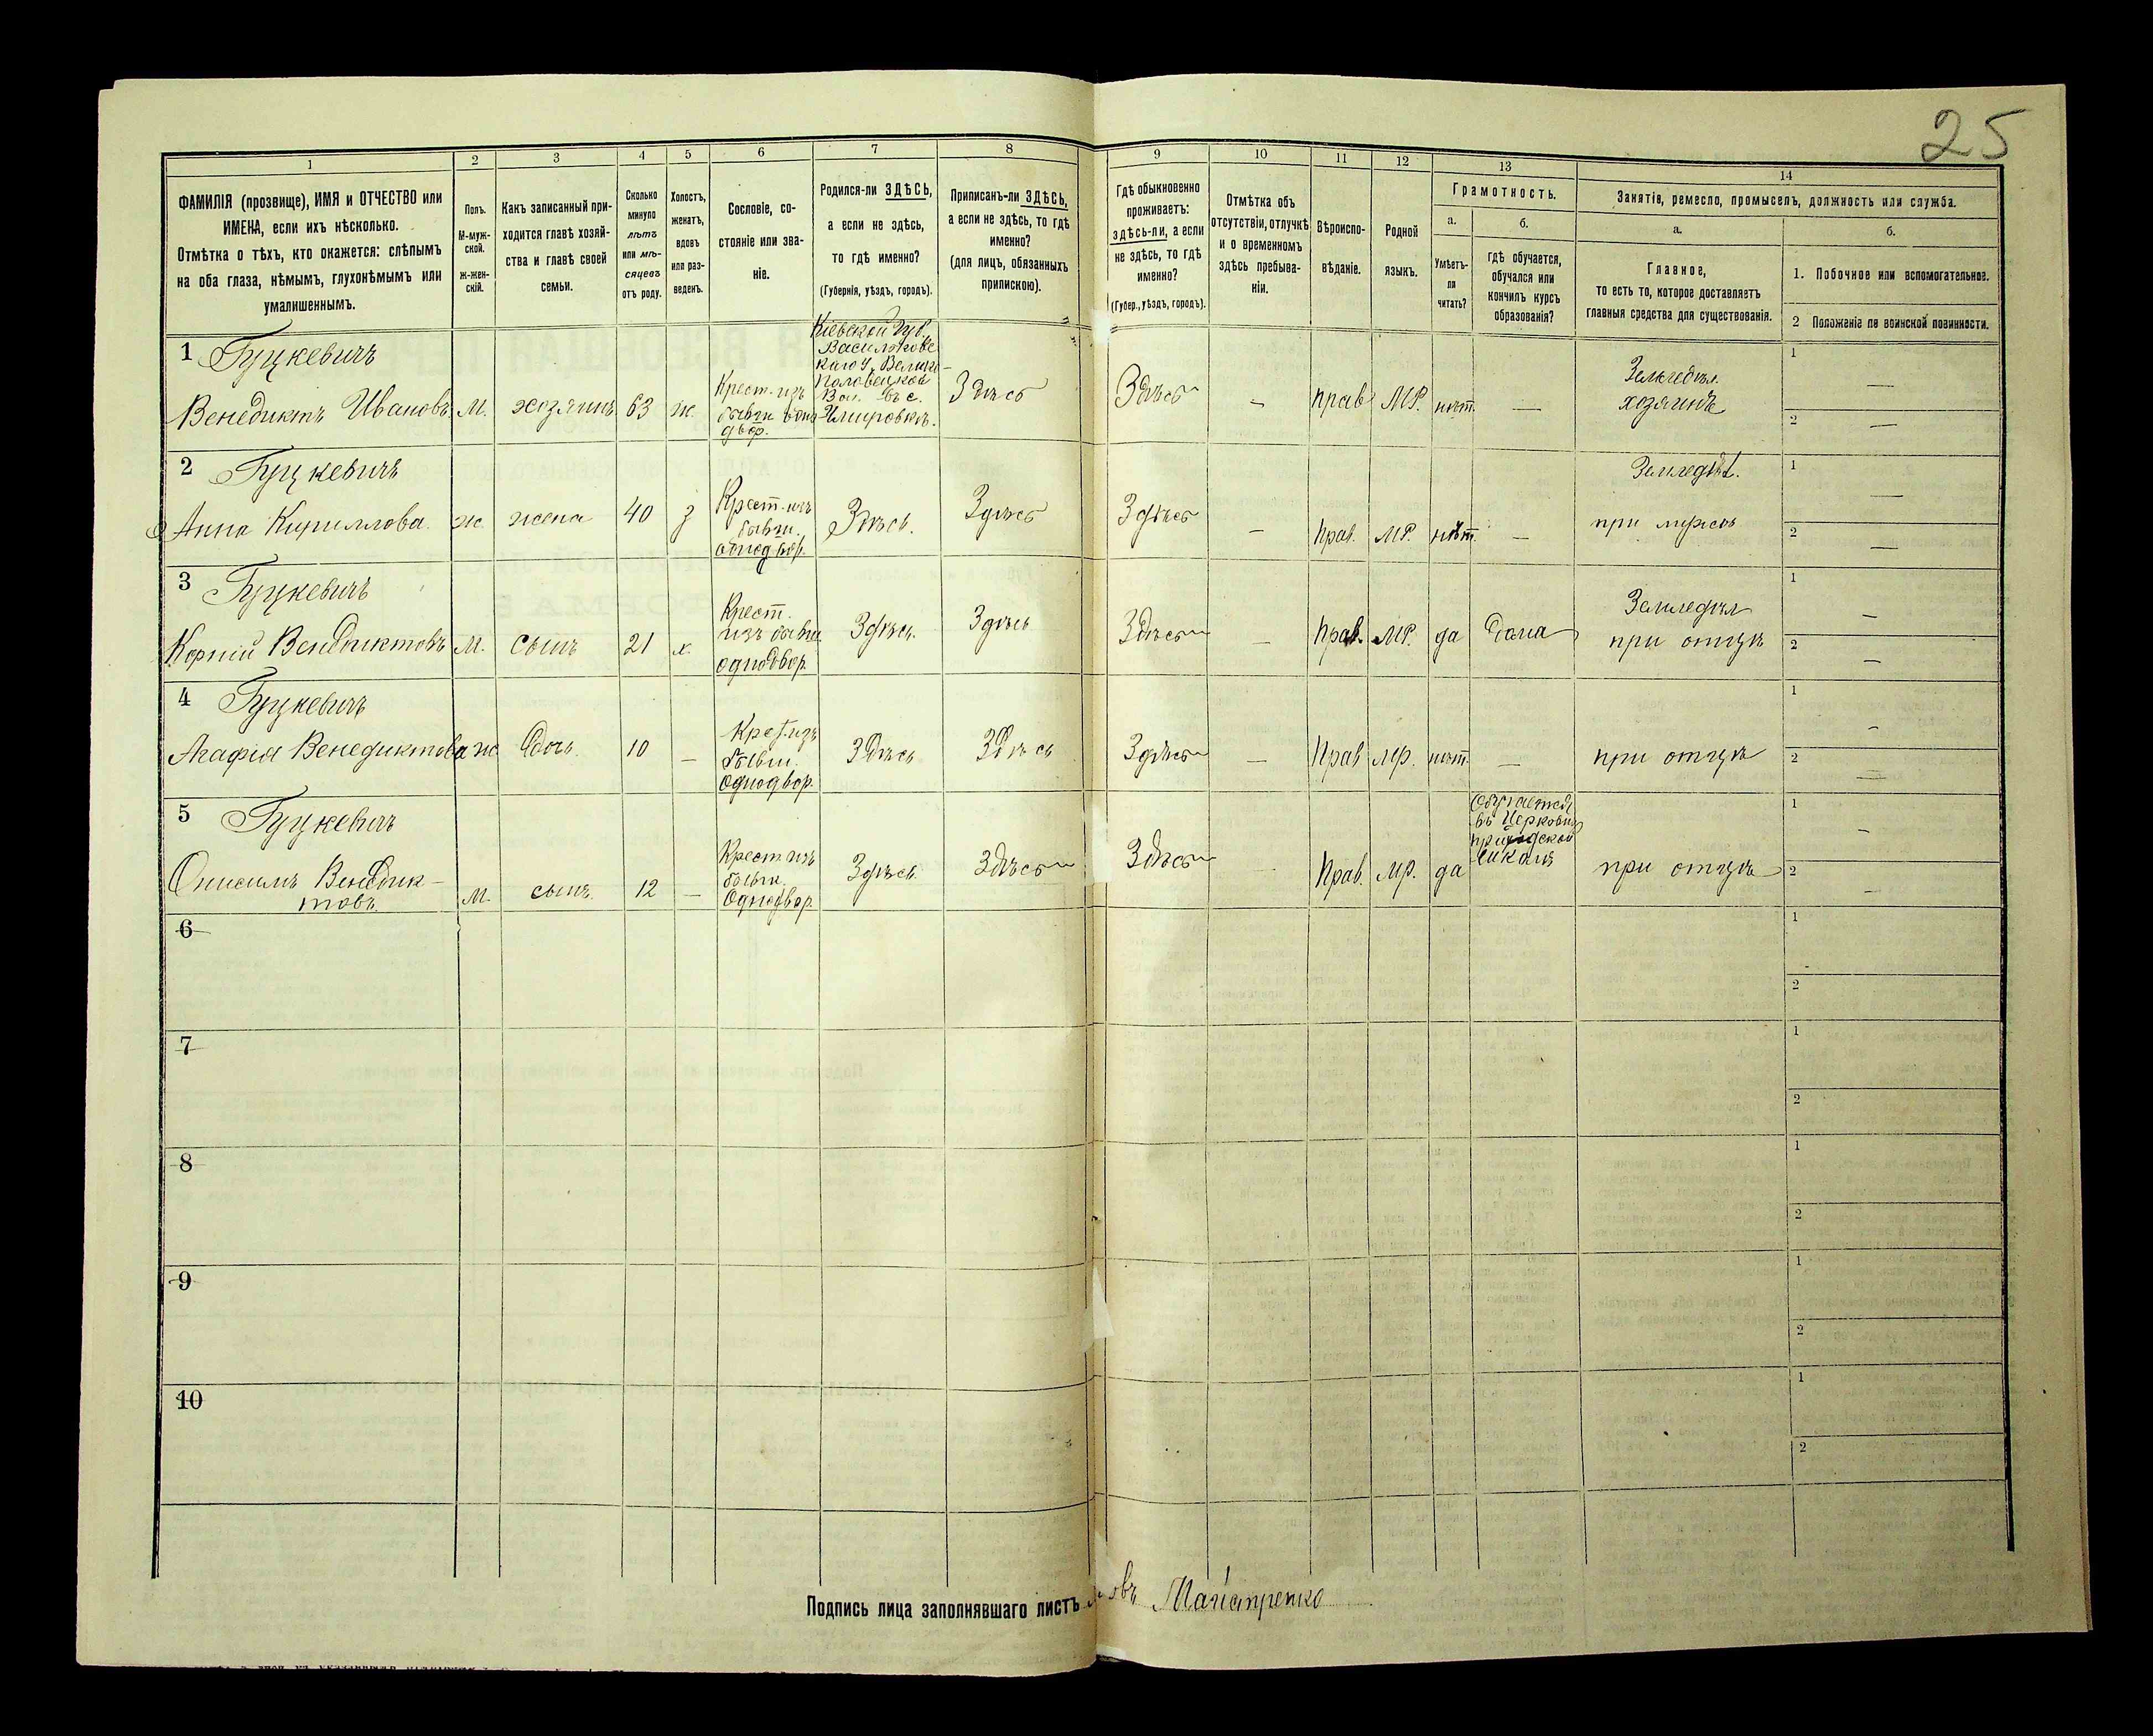 25
1
2
3
4
5
6
7
8
9
10
11
12
13
14
ФАМИЛІЯ (прозвище), ИМЯ и ОТЧЕСТВО или
ИМЕНА, если ихъ нѣсколько.
Отмѣтка о тѣхъ, кто окажется: слѣпымъ
на оба глаза, нѣмымъ, глухонѣмымъ или
умалишеннымъ.
Полъ.
М-муж-
ской.
ж-жен-
скій.
Какъ записанный при-
ходится главѣ хозяй-
ства и главѣ своей
семьи.
Сколько
минуло
лѣтъ
или мѣ-
сяцевъ
отъ роду.
Холостъ,
женатъ,
вдовъ
или раз-
веденъ.
Сословіе, со-
стояніе или зва-
ніе.
Родился-ли ЗДѢСЬ,
а если не здѣсь,
то гдѣ именно?
(Губернія, уѣздъ, городъ).
Приписанъ-ли ЗДѢСЬ,
а если не здѣсь, то гдѣ
именно?
(для лицъ, обязанныхъ
припискою).
Гдѣ обыкновенно
проживаетъ:
здѣсь-ли, а если
не здѣсь, то гдѣ
именно?
(Губер., уѣздъ, городъ).
Отмѣтка объ
отсутствіи, отлучкѣ
и о временномъ
здѣсь пребыва-
ніи.
Вѣроиспо-
вѣданіе.
Родной
языкъ.
Грамотность.
а.
Умѣетъ-
ли
читать?
б.
Гдѣ обучается,
обучался или
кончилъ курсъ
образованія?
Занятія, ремесло, промыселъ, должность или служба.
а.
Главное,
то есть то, которое доставляетъ
главныя средства для существованія.
б.
1. Побочное или вспомогательное.
2 Положеніе по воинской повинности.
1 Гуцкевичъ
Венедиктъ Ивановъ
М.
хозяинъ
63
ж.
Крест. изъ
бывш. одно
двор.
Кіевской Губ.
Васильковс
каго у. Велико-
половецкой
Вол. въ с.
Здѣсь
Здѣсь
—
прав
МР.
нѣт.
—
Земледѣл.
хозяинъ
1
—
2
—
2 Гуцкевичъ
Анна Кириллова.
ж.
жена
40
з
Крест. изъ
бывш.
однодвор.
Здѣсь.
Здѣсь
Здѣсь
—
прав.
МР.
нѣт.
—
Земледѣл.
при мужѣ
1
—
2
—
3 Гуцкевичъ
Корній Венедиктовъ
М.
сынъ
21
х.
Крест.
изъ бывш
однодвор.
Здѣсь.
Здѣсь
Здѣсь
—
прав.
МР.
да
дома
Земледѣл
при отцѣ
1
—
2
—
4 Гуцкевичъ
Агафія Венедиктова
ж
дочь.
10
—
Крест. изъ
бывш.
однодвор.
Здѣсь
Здѣсь
Здѣсь
—
Прав
МР.
нѣт.
—
при отцѣ
1
—
2
—
5 Гуцкевичъ
Онисимъ Венедик-
товъ.
М.
сынъ.
12
—
Крест изъ
бывш.
Однодвор.
Здѣсь
Здѣсь
Здѣсь
Прав.
МР.
да
Обучается
въ Церковно
приходской
школѣ
при отцѣ
1
—
2
—
6
1
2
7
1
2
8
1
2
9
1
2
10
1
2
Подпись лица заполнявшаго листъ
Майстренко